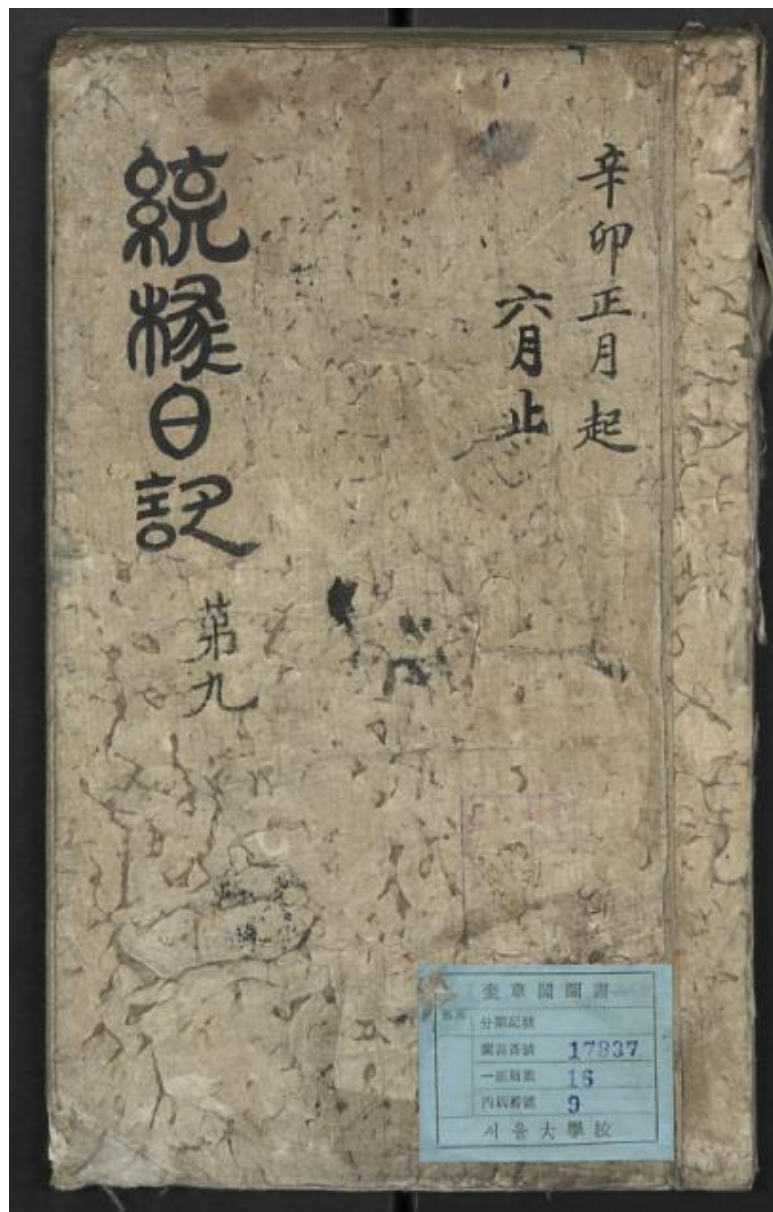 辛卯正月起
六月止
統椽日記
第九
奎章閣圖書
分類記號
圖書番號 17837
16
9
서울大學校